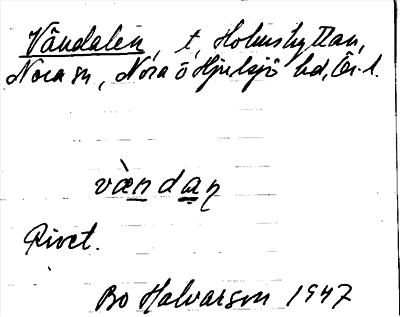 Våndalen, t, Holmshyttan,
Nora sn, Nora o Hjulsjö hd, Ör. l.
vàndaṇ
Rivet.
Bo Halvarson 1947